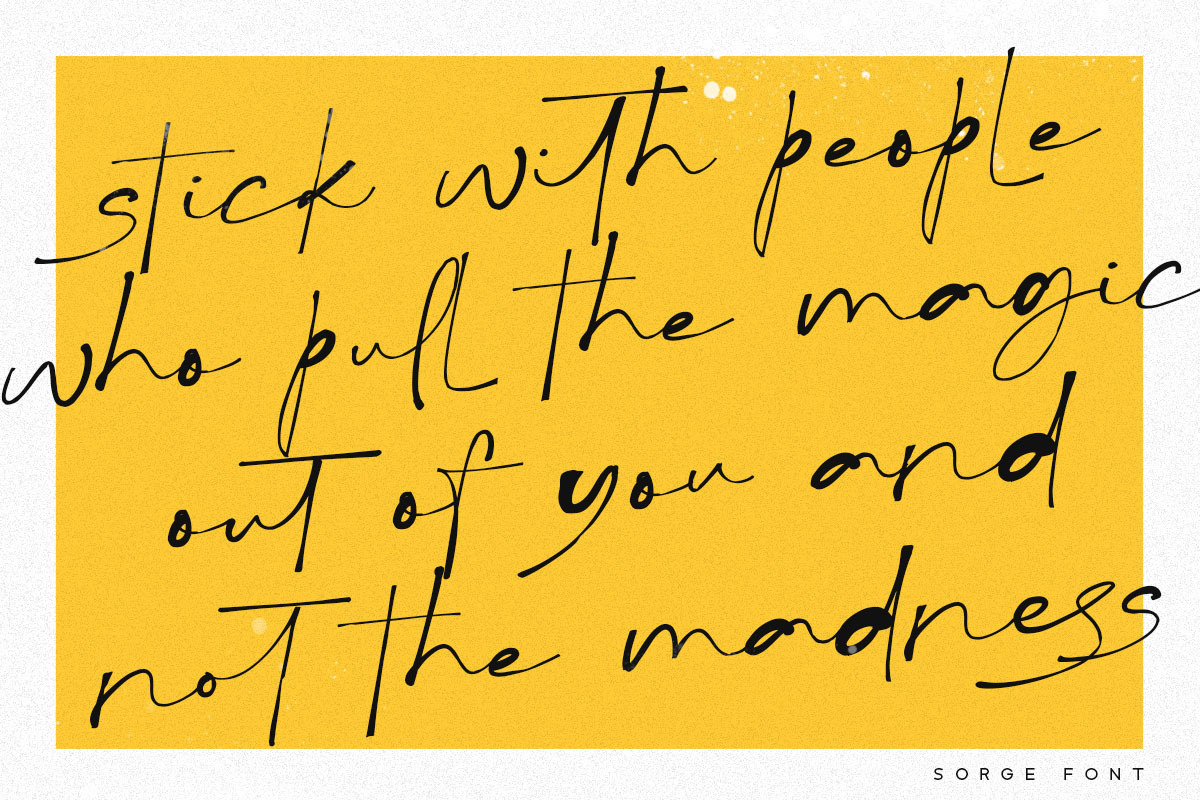 stick with people
who pull the magic
out of you and
not the madness
SORGE FONT